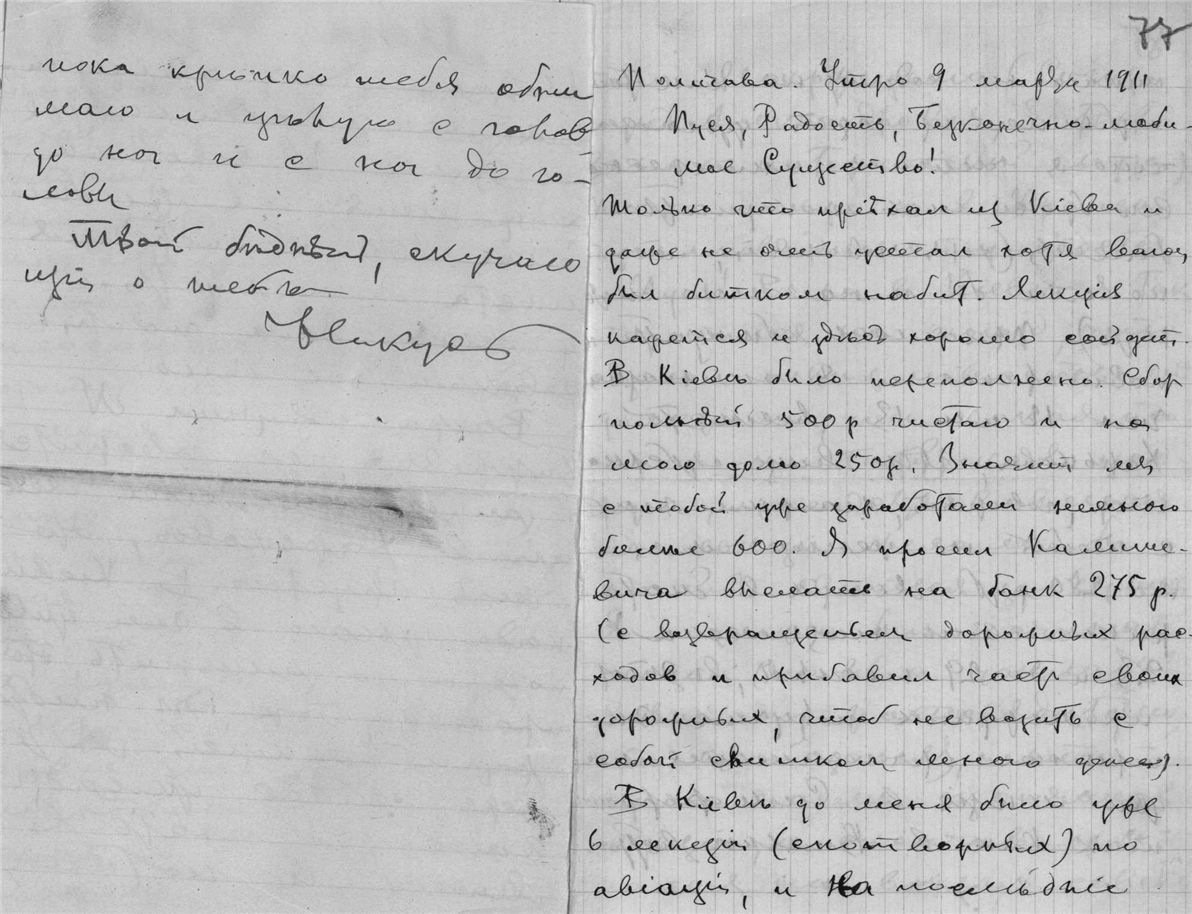 пока крѣпко тебя обни
маю и цѣлую с голов
до ног и с ног до го-
ловы
Твой бѣдный, скучаю
щій о тебѣ
77
Полтава. Утро 9 марта 1911
Пуся, Радость, Безконечно-люби-
мое Существо!
Только что пріѣхал из Кіева и
даже не очень устал хотя вагон
был битком набит. Лекція
кажется и здѣсь хорошо сойдет.
В Кіевѣ было переполнено. Сбор
полный 500 р чистаго и на
мою долю 250 р. Значит мы
с тобой уже заработали немного
больше 600. Я просил Калине-
вича выслать на банк 275 р.
(с возвращеньем дорожных рас-
ходов и прибавил часть своих
дорожных, чтоб не возить с
собой слишком много денег).
В Кіевѣ до меня было уже
6 лекцій (снотворных) по
авіаціи, и на послѣдніе